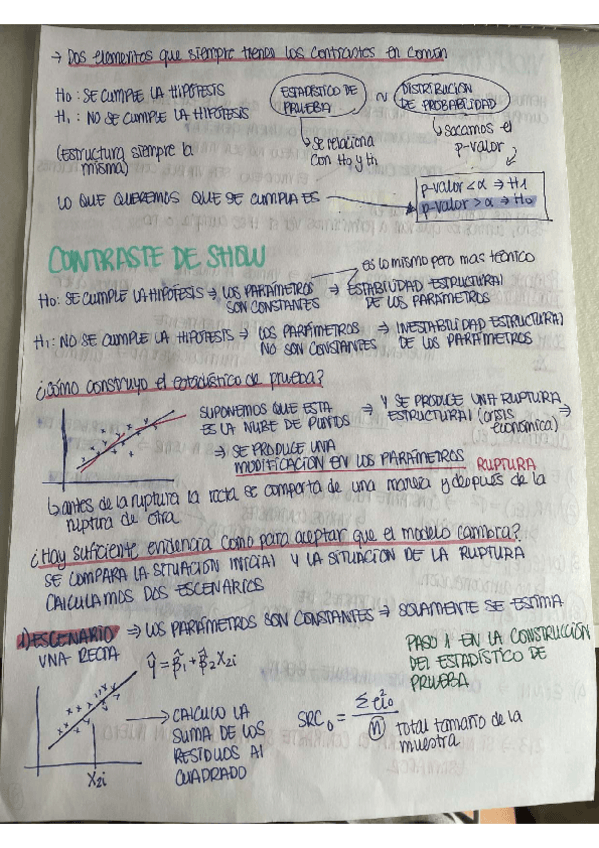 → Dos elementos que siempre tienen los contrastes en común
H0: SE CUMPLE LA HIPÓTESIS
H1: NO SE CUMPLE LA HIPÓTESIS
(Estructura siempre la misma)
ESTADÍSTICO DE PRUEBA ~ DISTRIBUCIÓN DE PROBABILIDAD
↳ se relaciona con H0 y H1
↳ sacamos el p-valor
LO QUE QUEREMOS QUE SE CUMPLA ES →
p-valor < α ⇒ H1
p-valor > α ⇒ H0
CONTRASTE DE SHOW
es lo mismo pero mas técnico
H0: SE CUMPLE LA HIPÓTESIS → LOS PARÁMETROS SON CONSTANTES → ESTABILIDAD ESTRUCTURAL DE LOS PARÁMETROS
H1: NO SE CUMPLE LA HIPÓTESIS → LOS PARÁMETROS NO SON CONSTANTES → INESTABILIDAD ESTRUCTURAL DE LOS PARÁMETROS
¿Cómo construyo el estadístico de prueba?
SUPONEMOS QUE ESTA ES LA NUBE DE PUNTOS → Y SE PRODUCE UNA RUPTURA ESTRUCTURAL (crisis económica) →
→ SE PRODUCE UNA MODIFICACIÓN EN LOS PARÁMETROS RUPTURA
↳ antes de la ruptura la recta se comporta de una manera y después de la
ruptura de otra
¿Hay suficiente evidencia como para aceptar que el modelo cambra?
SE COMPARA LA SITUACIÓN INICIAL Y LA SITUACIÓN DE LA RUPTURA
CALCULAMOS DOS ESCENARIOS
1) ESCENARIO → LOS PARÁMETROS SON CONSTANTES → SOLAMENTE SE ESTIMA
UNA RECTA ŷ = β̂1 + β̂2 X2i
PASO 1 EN LA CONSTRUCCIÓN
DEL ESTADÍSTICO DE
PRUEBA
→ CALCULO LA
SUMA DE LOS
RESIDUOS AL
CUADRADO
X2i
SRC0 = Σ ei0² / n total tamaño de la muestra